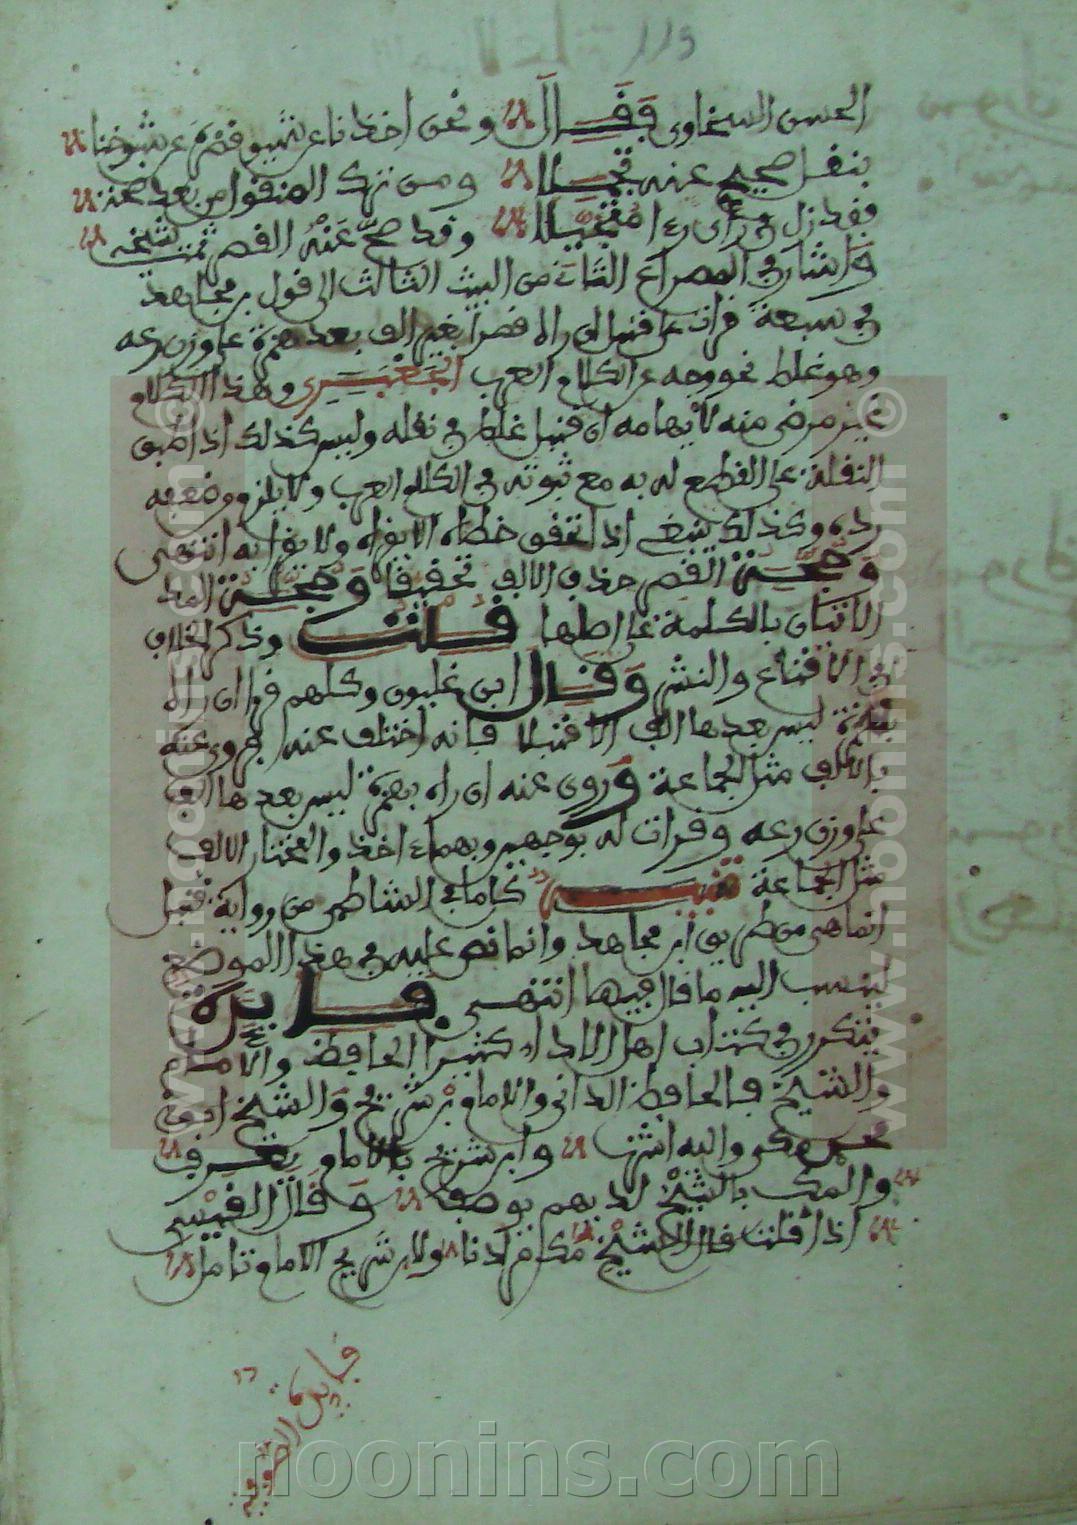 الحسن السخاوى فقال ونحن اخذنا عن شيوخنا
بنقل صحيح عنه ومن ترك المنقول من بعد صحة
فقد زل في راى راه وقد صح عنه القصر شيخه
واشار في المصراع الثانى من البيت الثالث الى قول بن مجاهد
في سبعة قرات على قنبل ان راه قصرا بغير الف بعد همزة على وزن رعه
وهو غلط نحو وجه عن الكلام العرب الجعبرى وهذا الكلام
غير مرضى منه لايهامه ان قنبل غلط في نقله وليس كذلك اذ اطبق
النقلة على القطع له به مع ثبوته في الكلام العرب ولا يلزم
رده وكذلك ينبغى اذا تحقق خطاه الا يقراه ولا يقرا به انتهى
وحجة القصر حذف الالف تخفيفا وحجة المد
الاتيان بالكلمة على اصلها قلت وذكر الخلاف
في الاقناع والنشر وقال ابن غلبون وكلهم قرا ان راه
بهمزة ليس بعدها الف الا قنبلا فانه اختلف عنه فروى عنه
بالالف مثل الجماعة وروى عنه ان راه بهمزة ليس بعدها الف
على وزن رعه وقرات له بوجهين وبهما اخذ والمختار الالف
مثل الجماعة تنبيه كلما في الشاطبى من رواية قنبل
انما هى من طريق ابن مجاهد وانما نص عليه في هذا الموضع
لينسب اليه ما قال فيها انتهى فايدة
يتكرر في كتاب اهل الاداء كثيرا الحافظ والامام
والشيخ فالحافظ الدانى والامام بن شريح والشيخ
مكى واليه اشتهر وابن شريح بالامام يعرف
والمك بالشيخ لديهم يوصف وقال القيسى
اذا قلت قال الشيخ ولابن شريح الامام تاملا